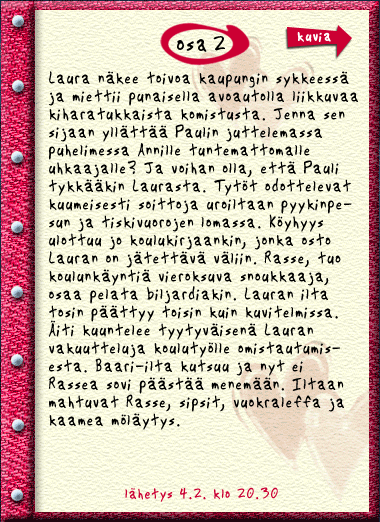 osa 2
kuvia
Laura näkee toivoa kaupungin sykkeessä
ja miettii punaisella avoautolla liikkuvaa
kiharatukkaista komistusta. Jenna sen
sijaan yllättää Paulin juttelemassa
puhelimessa Annille tuntemattomalle
uhkaajalle? Ja voihan olla, että Pauli
tykkääkin Laurasta. Tytöt odottelevat
kuumeisesti soittoja uroiltaan pyykinpe-
sun ja tiskivuorojen lomassa. Köyhyys
ulottuu jo koulukirjaankin, jonka osto
Lauran on jätettävä väliin. Rasse, tuo
koulunkäyntiä vieroksuva snoukkaaja,
osaa pelata biljardiakin. Lauran ilta
tosin päättyy toisin kuin kuvitelmissa.
Äiti kuuntelee tyytyväisenä Lauran
vakuutteluja koulutyölle omistautumis-
esta. Baari-ilta kutsuu ja nyt ei
Rassea sovi päästää menemään. Iltaan
mahtuvat Rasse, sipsit, vuokraleffa ja
kaamea möläytys.
lähetys 4.2. klo 20.30